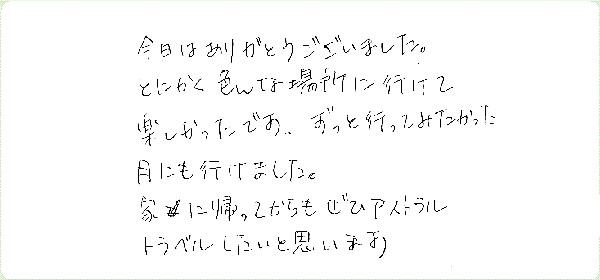 今日はありがとうございました。
とにかく色んな場所に行けて
楽しかったです。ずっと行ってみたかった
月にも行けました。
家に帰ってからもぜひアストラル
トラベルしたいと思います